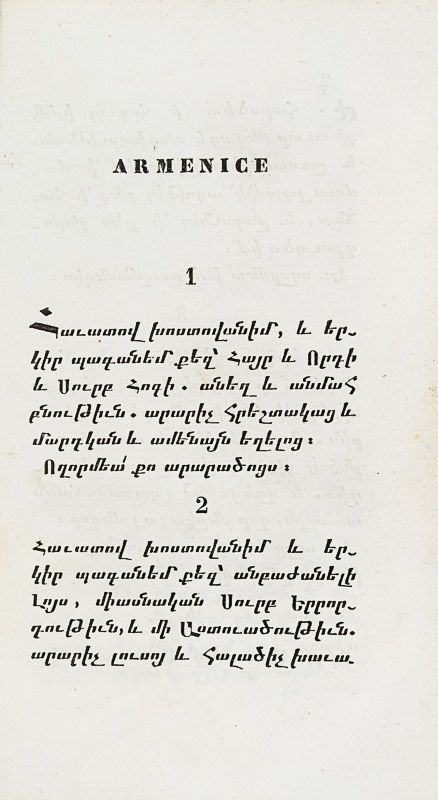 ARMENICE
1
Հաւատով խոստովանիմ, և եր֊
կիր պագանեմ քեզ՝ Հայր և Որդի
և Սուրբ Հոգի. անեղ և անմահ
բնութիւն. արարիչ հրեշտակաց և
մարդկան և ամենայն եղելոց։
Ողորմեա՛ քո արարածոցս։
2
Հաւատով խոստովանիմ և եր֊
կիր պագանեմ քեզ՝ անբաժանելի
Լոյս, միասնական Սուրբ Երրոր֊
դութիւն, և մի Աստուածութիւն.
արարիչ լուսոյ և հալածիչ խաւա֊